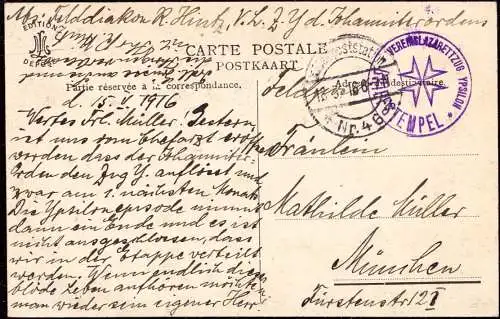 Abs. Felddiakon R. Hintz, V.L.Z. Y d. Johanniterordens
EDITION
DEPOSE
CARTE POSTALE
POSTKAART
Partie réservée à la correspondance.
Adresse du destinataire.
d. 15. V. 1916
Wertes Frl. Müller! Gestern
ist uns vom Chefarzt eröffnet
worden dass der Johanniter-
Orden den Zug Y. auflöst und
zwar am 1. nächsten Monats
Die Ypsilonepisode nimmt
dann ein Ende und es ist
nicht ausgeschlossen, dass
wir in der Etappe verteilt
werden. Wenn endlich die
blöde Leben aufhören möchte
man wieder sein eigener Herr
Feldpost
Nr. 48
VEREINSLAZARETTZUG YPSILON
STEMPEL
Fräulein
Mathilde Müller
München
Fürstenstr 12 I